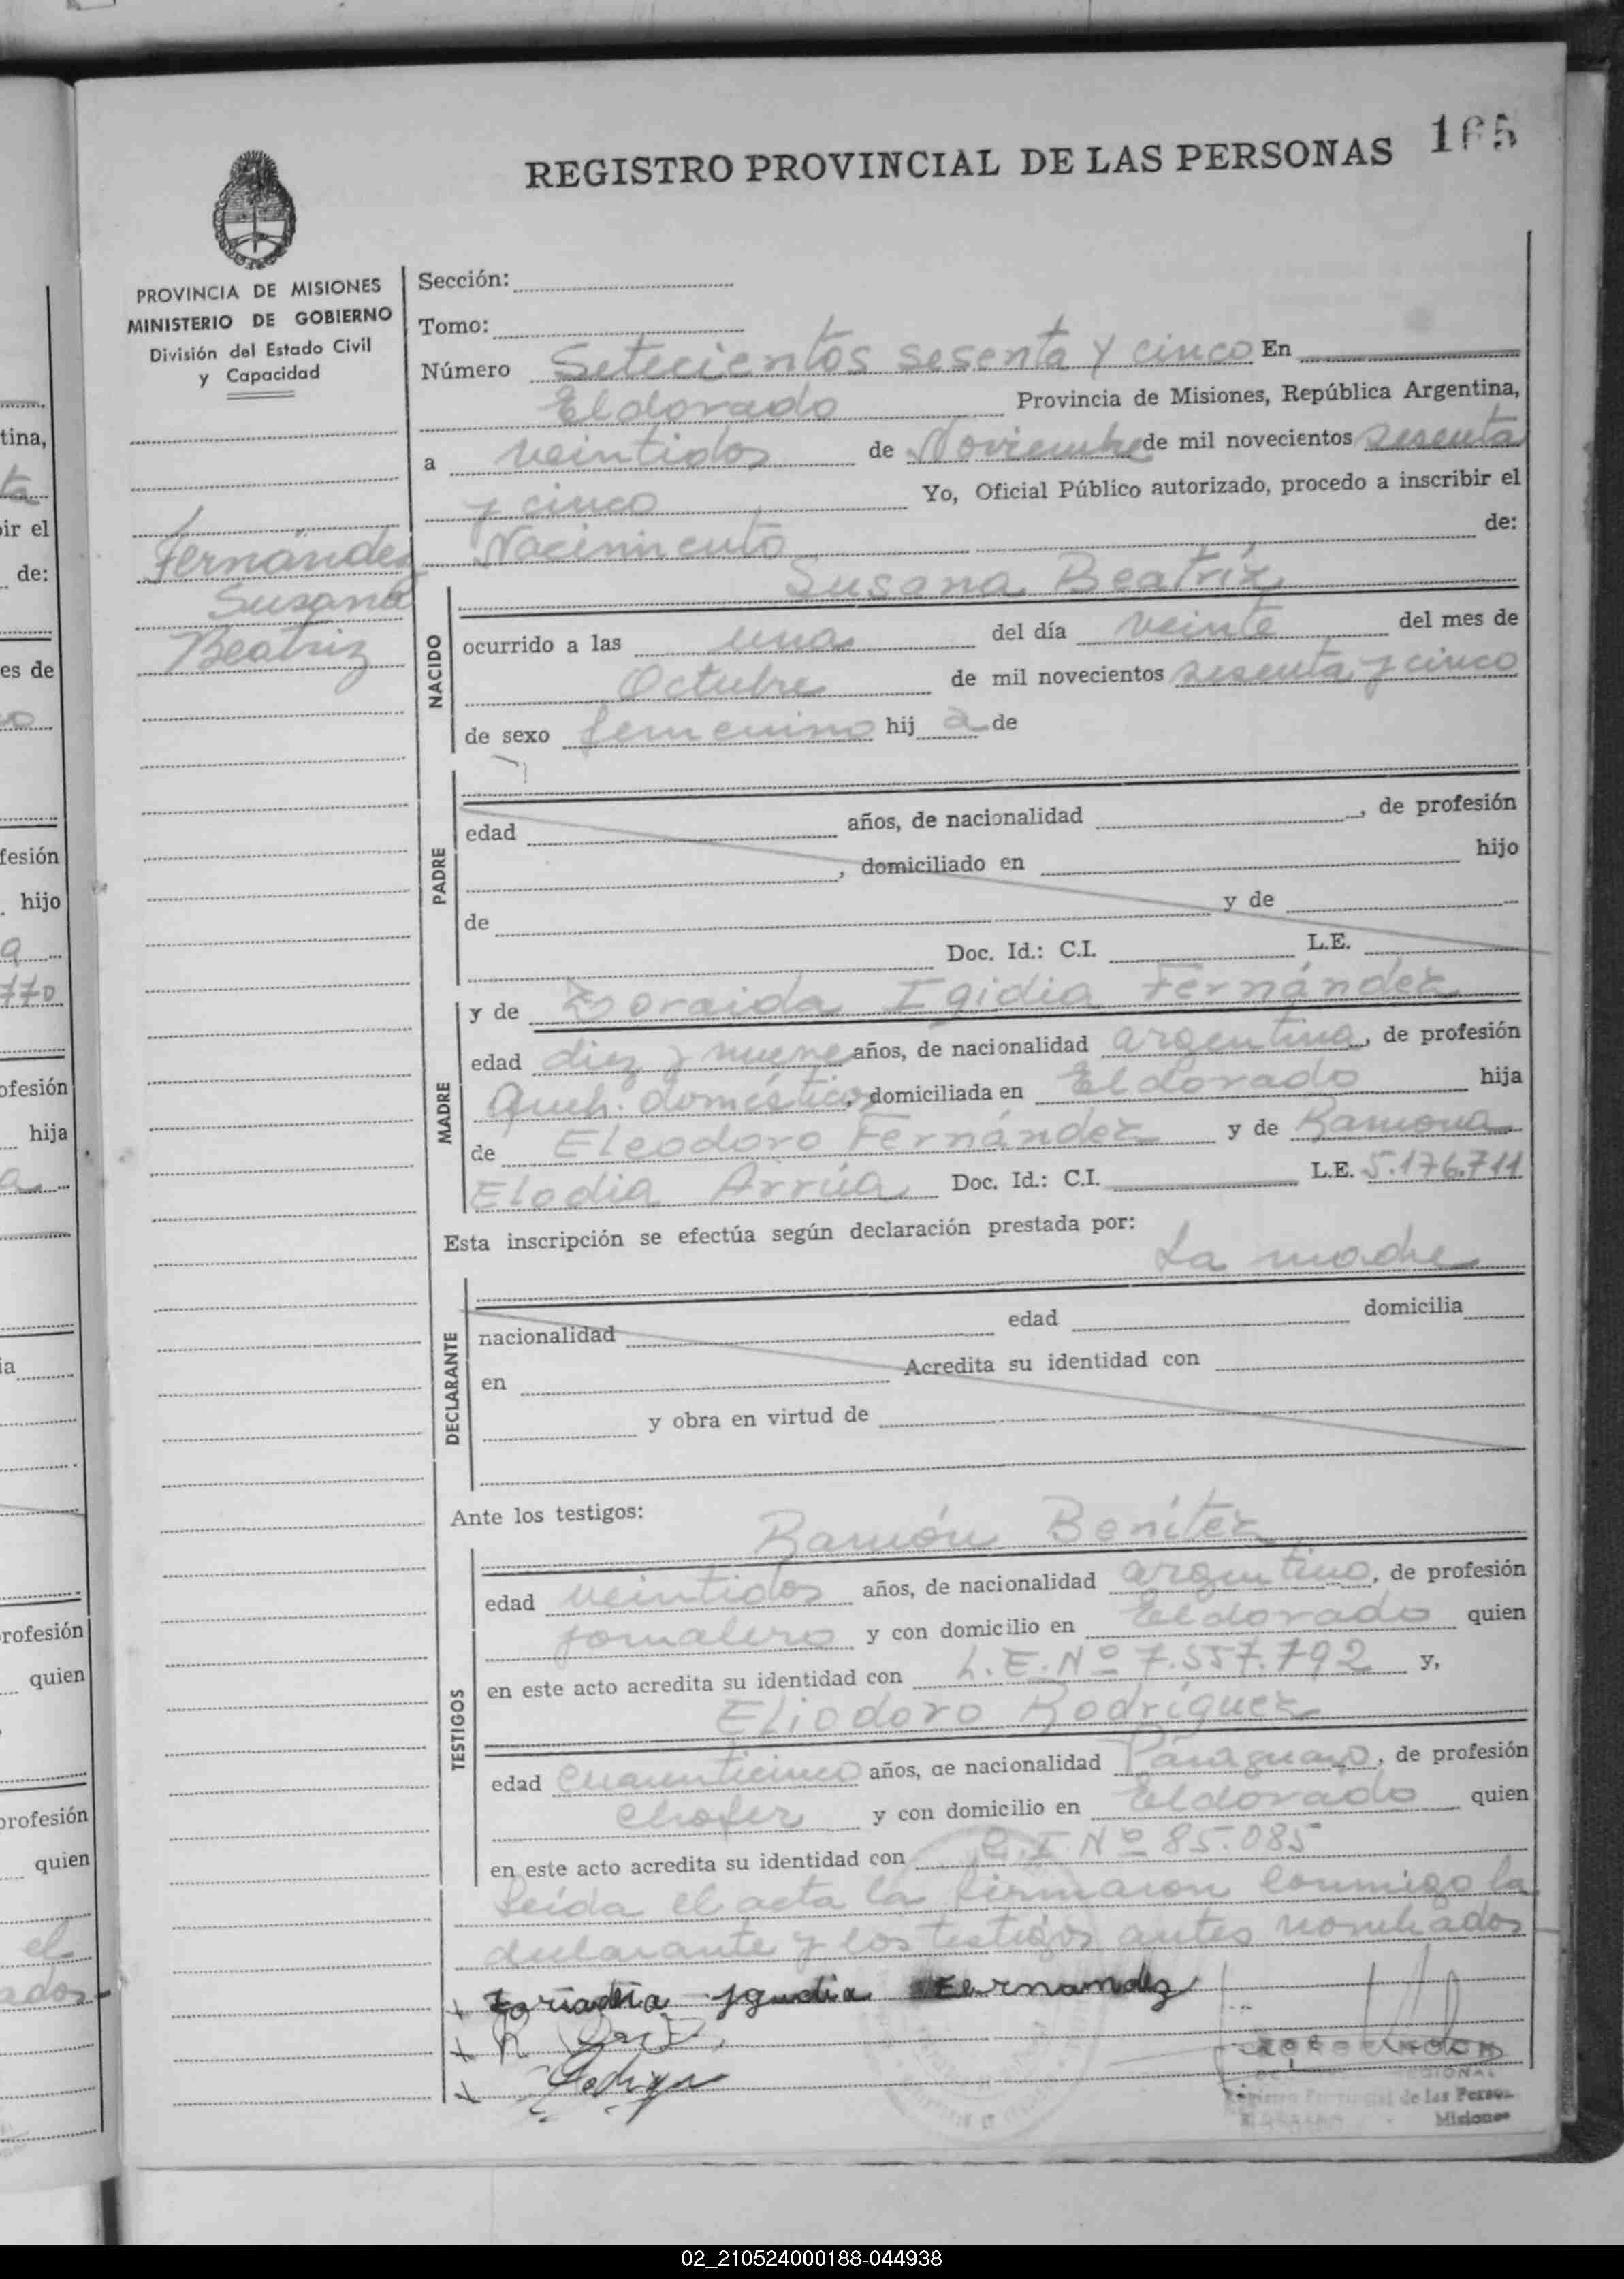 165
REGISTRO PROVINCIAL DE LAS PERSONAS
PROVINCIA DE MISIONES
MINISTERIO DE GOBIERNO
División del Estado Civil
y Capacidad
Fernández
Susana
Beatriz
Sección:
Tomo:
Número Setecientos sesenta y cinco En
Eldorado Provincia de Misiones, República Argentina,
a veintidos de Noviembre de mil novecientos sesenta
y cinco Yo, Oficial Público autorizado, procedo a inscribir el
Nacimiento de:
Susana Beatríz
NACIDO
ocurrido a las una del día veinte del mes de
Octubre de mil novecientos sesenta y cinco
de sexo femenino hij a de
PADRE
edad años, de nacionalidad , de profesión
, domiciliado en hijo
de y de
Doc. Id.: C.I. L.E.
MADRE
y de Zoraida Igidia Fernández
edad diez y nueve años, de nacionalidad argentina, de profesión
Queh. domésticos, domiciliada en Eldorado hija
de Eleodoro Fernández y de Ramona
Elodia Arrúa Doc. Id.: C.I. L.E. 5.176.711
Esta inscripción se efectúa según declaración prestada por:
La madre
DECLARANTE
nacionalidad edad domicilia
en Acredita su identidad con
y obra en virtud de
Ante los testigos:
Ramón Benítez
TESTIGOS
edad veintidos años, de nacionalidad argentino, de profesión
jornalero y con domicilio en Eldorado quien
en este acto acredita su identidad con L.E. Nº 7.557.792 y,
Eliodoro Rodríguez
edad cuarenticinco años, de nacionalidad Paraguayo, de profesión
Chofer y con domicilio en Eldorado quien
en este acto acredita su identidad con C.I. Nº 85.085
Leída el acta la firmaron conmigo la
declarante y los testigos antes nombrados
Fernandez
de las Perso
Misiones
tina,
ta
ir el
de:
es de
fesión
hijo
a
770
ofesión
hija
a
ia
rofesión
quien
profesión
quien
el
ados
02_210524000188-044938